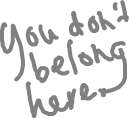 you don't
belong
here.